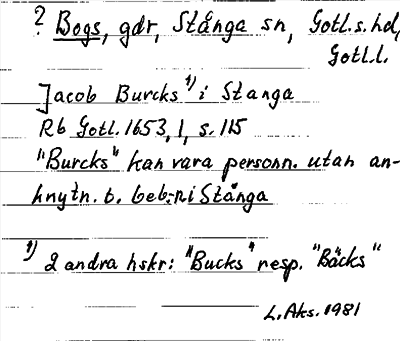 ? Bogs, gdr, Stånga sn, Gotl. s. hd,
Gotl. l.
Jacob Burcks ¹⁾ i Stanga
Rb Gotl. 1653, 1, s. 115
"Burcks" kan vara personn. utan an-
knytn. t. beb:n i Stånga
¹⁾ 2 andra hskr: "Bucks" resp. "Bäcks"
L. Aks. 1981